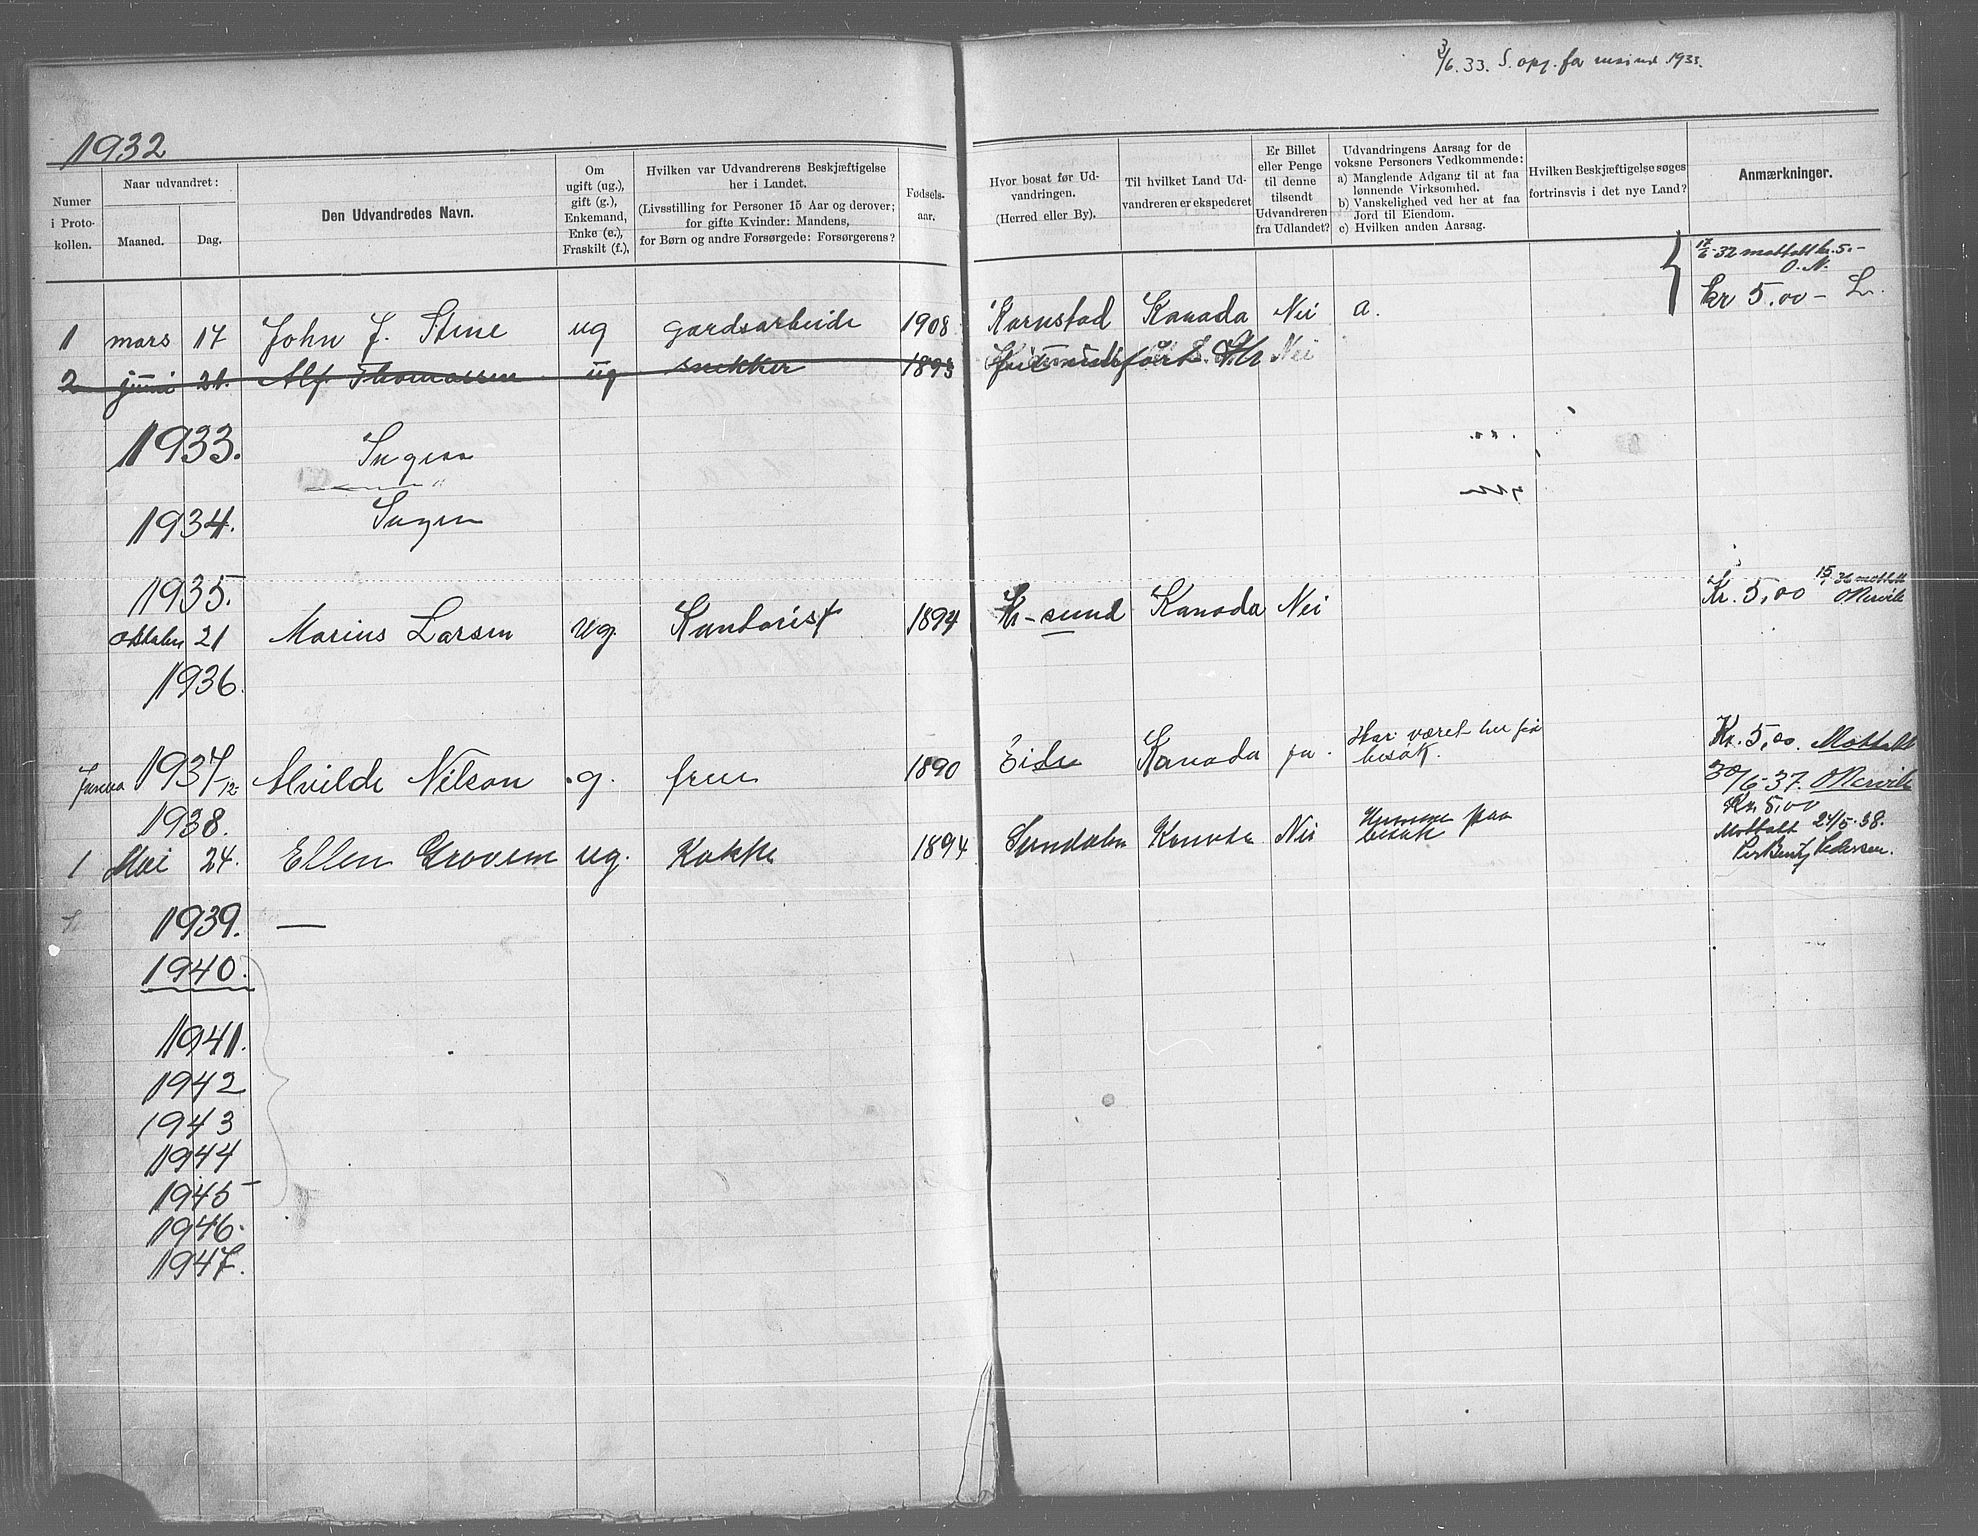 3/6.33. S. opg. for
1933.
1932
Numer i Protokollen.
Naar udvandret:
Maaned.
Dag.
Den Udvandredes Navn.
Om ugift (ug.), gift (g.), Enkemand, Enke (e.), Fraskilt (f.),
Hvilken var Udvandrerens Beskjæftigelse her i Landet.
(Livsstilling for Personer 15 Aar og derover; for gifte Kvinder: Mandens, for Børn og andre Forsørgede: Forsørgerens?
Fødselsaar.
Hvor bosat før Udvandringen.
(Herred eller By).
Til hvilket Land Udvandreren er ekspederet
Er Billet eller Penge til denne tilsendt Udvandreren fra Udlandet?
Udvandringens Aarsag for de voksne Personers Vedkommende:
a) Manglende Adgang til at faa lønnende Virksomhed.
b) Vanskelighed ved her at faa Jord til Eiendom.
c) Hvilken anden Aarsag.
Hvilken Beskjæftigelse søges fortrinsvis i det nye Land?
Anmærkninger.
17/6-32 mottatt kr. 5.-
O. N.
1 mars 17 John J. Stene ug gardsarbeide 1908 Kornstad Kanada Nei a. kr 5,00 -
2 juni 21. Alf Thomassen ug snekker 1893 Nei
1933. Ingen
1934. Ingen
1935.
Oktober 21 Marius Larsen ug. Kontorist 1894 Kr-sund Kanada Nei Kr. 5,00 mottatt
1936.
1937
Januar 12 Alvilde Nilson g. frue 1890 Eide Kanada ja. Har været her paa besøk. Kr. 5,00. Mottatt
30/6-37.
1938. Kr. 5,00
1 Mai 24. Ellen Grovem ug. Kokke 1894 Sundalen Kanada Nei Hjemme paa besøk Mottatt 24/5-38.
Pedersen.
1939. —
1940.
1941.
1942
1943
1944
1945
1946.
1947.